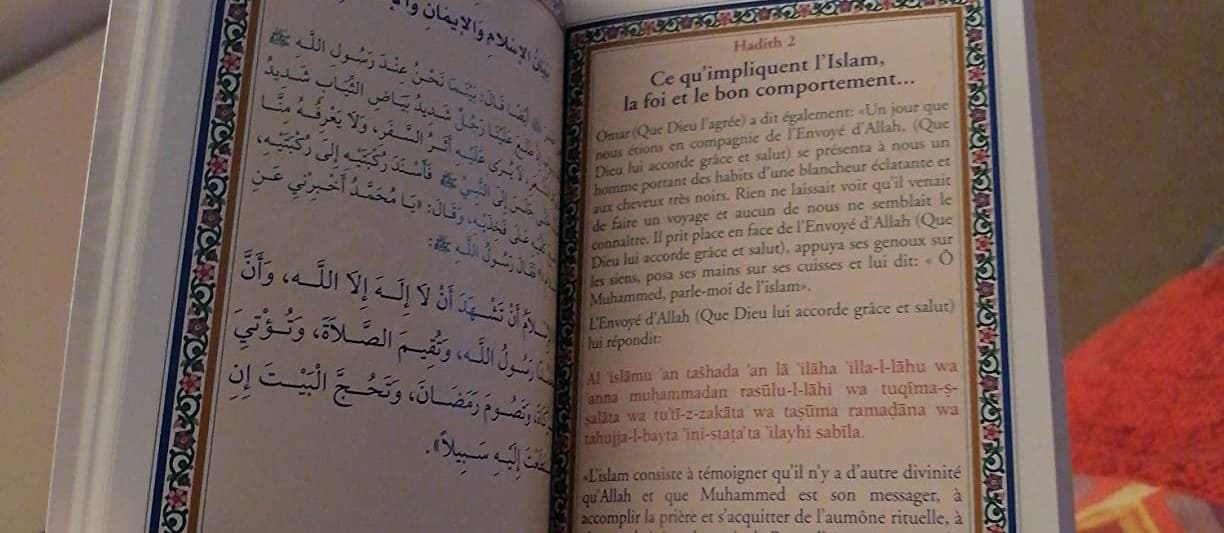 بَيَانُ الإِسْلَامِ وَالإِيمَانِ
أَيْضًا قَالَ: بَيْنَمَا نَحْنُ عِنْدَ رَسُولِ اللَّهِ ﷺ
عَلَيْنَا رَجُلٌ شَدِيدُ بَيَاضِ الثِّيَابِ شَدِيدُ
لَا يُرَى عَلَيْهِ أَثَرُ السَّفَرِ، وَلَا يَعْرِفُهُ مِنَّا
إِلَى النَّبِيِّ ﷺ فَأَسْنَدَ رُكْبَتَيْهِ إِلَى رُكْبَتَيْهِ،
عَلَى فَخْذَيْهِ، وَقَالَ: «يَا مُحَمَّدُ أَخْبِرْنِي عَنِ
فَقَالَ رَسُولُ اللَّهِ ﷺ:
أَنْ تَشْهَدَ أَنْ لَا إِلَهَ إِلَّا اللَّه، وَأَنَّ
رَسُولُ اللَّه، وَتُقِيمَ الصَّلَاةَ، وَتُؤْتِيَ
وَتَصُومَ رَمَضَانَ، وَتَحُجَّ الْبَيْتَ إِنِ
إِلَيْهِ سَبِيلاً».
Hadith 2
Ce qu'impliquent l'Islam,
la foi et le bon comportement...
Omar (Que Dieu l'agrée) a dit également: «Un jour que
nous étions en compagnie de l'Envoyé d'Allah, (Que
Dieu lui accorde grâce et salut) se présenta à nous un
homme portant des habits d'une blancheur éclatante et
aux cheveux très noirs. Rien ne laissait voir qu'il venait
de faire un voyage et aucun de nous ne semblait le
connaître. Il prit place en face de l'Envoyé d'Allah (Que
Dieu lui accorde grâce et salut), appuya ses genoux sur
les siens, posa ses mains sur ses cuisses et lui dit: « Ô
Muhammed, parle-moi de l'islam».
L'Envoyé d'Allah (Que Dieu lui accorde grâce et salut)
lui répondit:
Al 'islāmu 'an tašhada 'an lā 'ilāha 'illa-l-lāhu wa
'anna muḥammadan rasūlu-l-lāhi wa tuqīma-ṣ-
ṣalāta wa tu'tī-z-zakāta wa taṣūma ramaḍāna wa
taḥujja-l-bayta 'ini-staṭa'ta 'ilayhi sabīla.
«L'islam consiste à témoigner qu'il n'y a d'autre divinité
qu'Allah et que Muhammed est son messager, à
accomplir la prière et s'acquitter de l'aumône rituelle, à